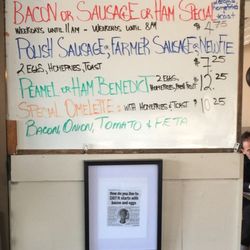 BACON OR SAUSAGE OR HAM SPECIAL
WEEKDAYS UNTIL 11AM - WEEKENDS UNTIL 8AM $4.75
POLISH SAUSAGE, FARMER SAUSAGE, NEWFIE
2 EGGS, HOMEFRIES, TOAST $7.25
PEAMEL OR HAM BENEDICT 2 EGGS, $12.25
SPECIAL OMELETTE: WITH HOMEFRIES & TOAST $10.25
BACON, ONION, TOMATO & FETA
How do you like to
start
bacon and eggs